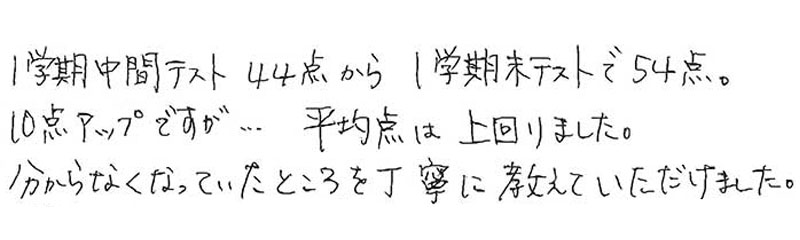 1学期中間テスト 44点から 1学期末テストで54点。
10点アップですが… 平均点は上回りました。
分からなくなっていたところを丁寧に教えていただけました。